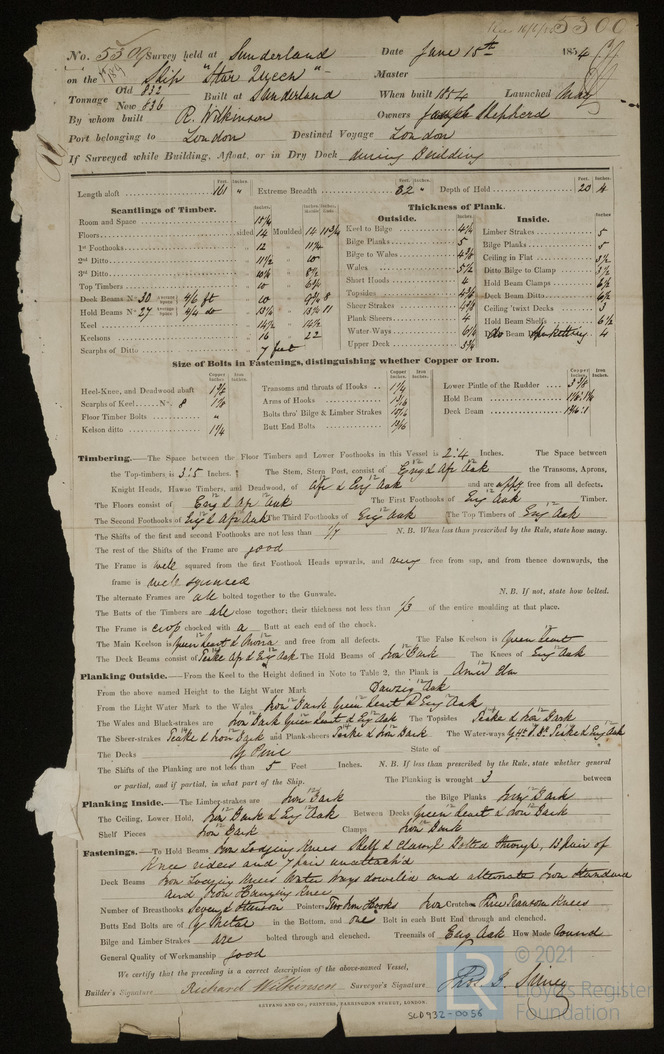 5300
No. 5509 Survey held at Sunderland Date June 15th 1854
on the Ship "Star Queen" Master
Tonnage Old 832 New 836 Built at Sunderland When built 1854 Launched May
By whom built R. Wilkinson Owners Joseph Shepherd
Port belonging to London Destined Voyage London
If Surveyed while Building, Afloat, or in Dry Dock during Building
Feet. Inches. Feet. Inches. Feet. Inches.
Length aloft 161 " Extreme Breadth 32 " Depth of Hold 20 4
Scantlings of Timber.
Room and Space
Floors sided 14 Moulded 14 11 3/4
1st Foothooks 12 11 1/4
2nd Ditto 11 1/2 10
3rd Ditto 10 1/2 8 1/2
Top Timbers 10 6 3/4
Deck Beams No. 30 Average Space 4/6 ft 10 9 3/4 8
Hold Beams No. 27 Average Space 4/4 do 13 1/2 13 1/2 11
Keel 14 1/2 14 1/2
Keelsons 16 22
Scarphs of Ditto 7 feet
Thickness of Plank.
Outside.
Keel to Bilge 4 1/2
Bilge Planks 5
Bilge to Wales 4 3/4
Wales 5 1/2
Short Hoods 4
Topsides 4 3/4
Sheer Strakes 4 3/4
Plank Sheers 4
Water-Ways 6 1/2
Upper Deck 3 3/4
Inside.
Limber Strakes 5
Bilge Planks 5
Ceiling in Flat 3 1/2
Ditto Bilge to Clamp 3 1/2
Hold Beam Clamps 6 1/2
Deck Beam Ditto 6 1/2
Ceiling 'twixt Decks 3
Hold Beam Shelfs 6 1/2
do Beam Spirketting 4
Size of Bolts in Fastenings, distinguishing whether Copper or Iron.
Copper Inches. Iron Inches. Copper Inches. Iron Inches. Copper Inches. Iron Inches.
Heel-Knee, and Deadwood abaft
Scarphs of Keel No. 8 1 1/8
Floor Timber Bolts "
Kelson ditto 1 1/4
Transoms and throats of Hooks 1 1/8
Arms of Hooks 13/16
Bolts thro' Bilge & Limber Strakes
Butt End Bolts 13/16
Lower Pintle of the Rudder 3 3/8
Hold Beam
Deck Beam
Timbering.—The Space between the Floor Timbers and Lower Foothooks in this Vessel is 2.4 Inches. The Space between
the Top-timbers is 3.5 Inches. The Stem, Stern Post, consist of Eng & Afr Oak the Transoms, Aprons,
Knight Heads, Hawse Timbers, and Deadwood, of Afr & Eng Oak and are free from all defects.
The Floors consist of Eng & Afr Oak The First Foothooks of Eng Oak Timber.
The Second Foothooks of Eng & Afr Oak The Third Foothooks of Eng Oak The Top Timbers of Eng Oak
The Shifts of the first and second Foothooks are not less than 1/7 N.B. When less than prescribed by the Rule, state how many.
The rest of the Shifts of the Frame are good
The Frame is well squared from the first Foothook Heads upwards, and very free from sap, and from thence downwards, the
frame is well squared
The alternate Frames are all bolted together to the Gunwale. N.B. If not, state how bolted.
The Butts of the Timbers are all close together; their thickness not less than 1/3 of the entire moulding at that place.
The Frame is crop chocked with a Butt at each end of the chock.
The Main Keelson is Green heart & Mora and free from all defects. The False Keelson is Green heart
The Deck Beams consist of Teake Afr & Eng Oak The Hold Beams of Iron Bark The Knees of Eng Oak
Planking Outside.—From the Keel to the Height defined in Note to Table 2, the Plank is Amer Elm
From the above named Height to the Light Water Mark Danzig Oak
From the Light Water Mark to the Wales Iron Bark Green heart & Eng Oak
The Wales and Black-strakes are Iron Bark Green heart & Eng Oak The Topsides Teake & Iron Bark
The Sheer-strakes Teake & Iron Bark and Plank-sheers Teake & Iron Bark The Water-ways G Ht I. Bk Teake & Eng Oak
The Decks Y Pine State of
The Shifts of the Planking are not less than 5 Feet Inches. N.B. If less than prescribed by the Rule, state whether general
or partial, and if partial, in what part of the Ship. The Planking is wrought 3 between
Planking Inside.—The Limber-strakes are Iron Bark the Bilge Planks Iron Bark
The Ceiling, Lower Hold, Iron Bark & Eng Oak Between Decks Green heart & Iron Bark
Shelf Pieces Iron Bark Clamps Iron Bark
Fastenings.—To Hold Beams Iron Lodging Knees Shelf & clamps bolted through, 13 pair of
Knee riders and 7 pair unattach'd
Deck Beams Iron Lodging Knees Water ways dowelled and alternate Iron Standard
and Iron Hanging Knee
Number of Breasthooks Seven & Pointers Two Iron Hooks Iron Crutches Three Transom Knees
Butts End Bolts are of Y Metal in the Bottom, and one Bolt in each Butt End through and clenched.
Bilge and Limber Strakes are bolted through and clenched. Treenails of Eng Oak How Made Round
General Quality of Workmanship good
We certify that the preceding is a correct description of the above-named Vessel,
Builder's Signature Richard Wilkinson Surveyor's Signature
SEYFANG AND CO., PRINTERS, FARRINGDON STREET, LONDON.
SLD932-0056
© 2021
LR
Lloyd's Register
Foundation